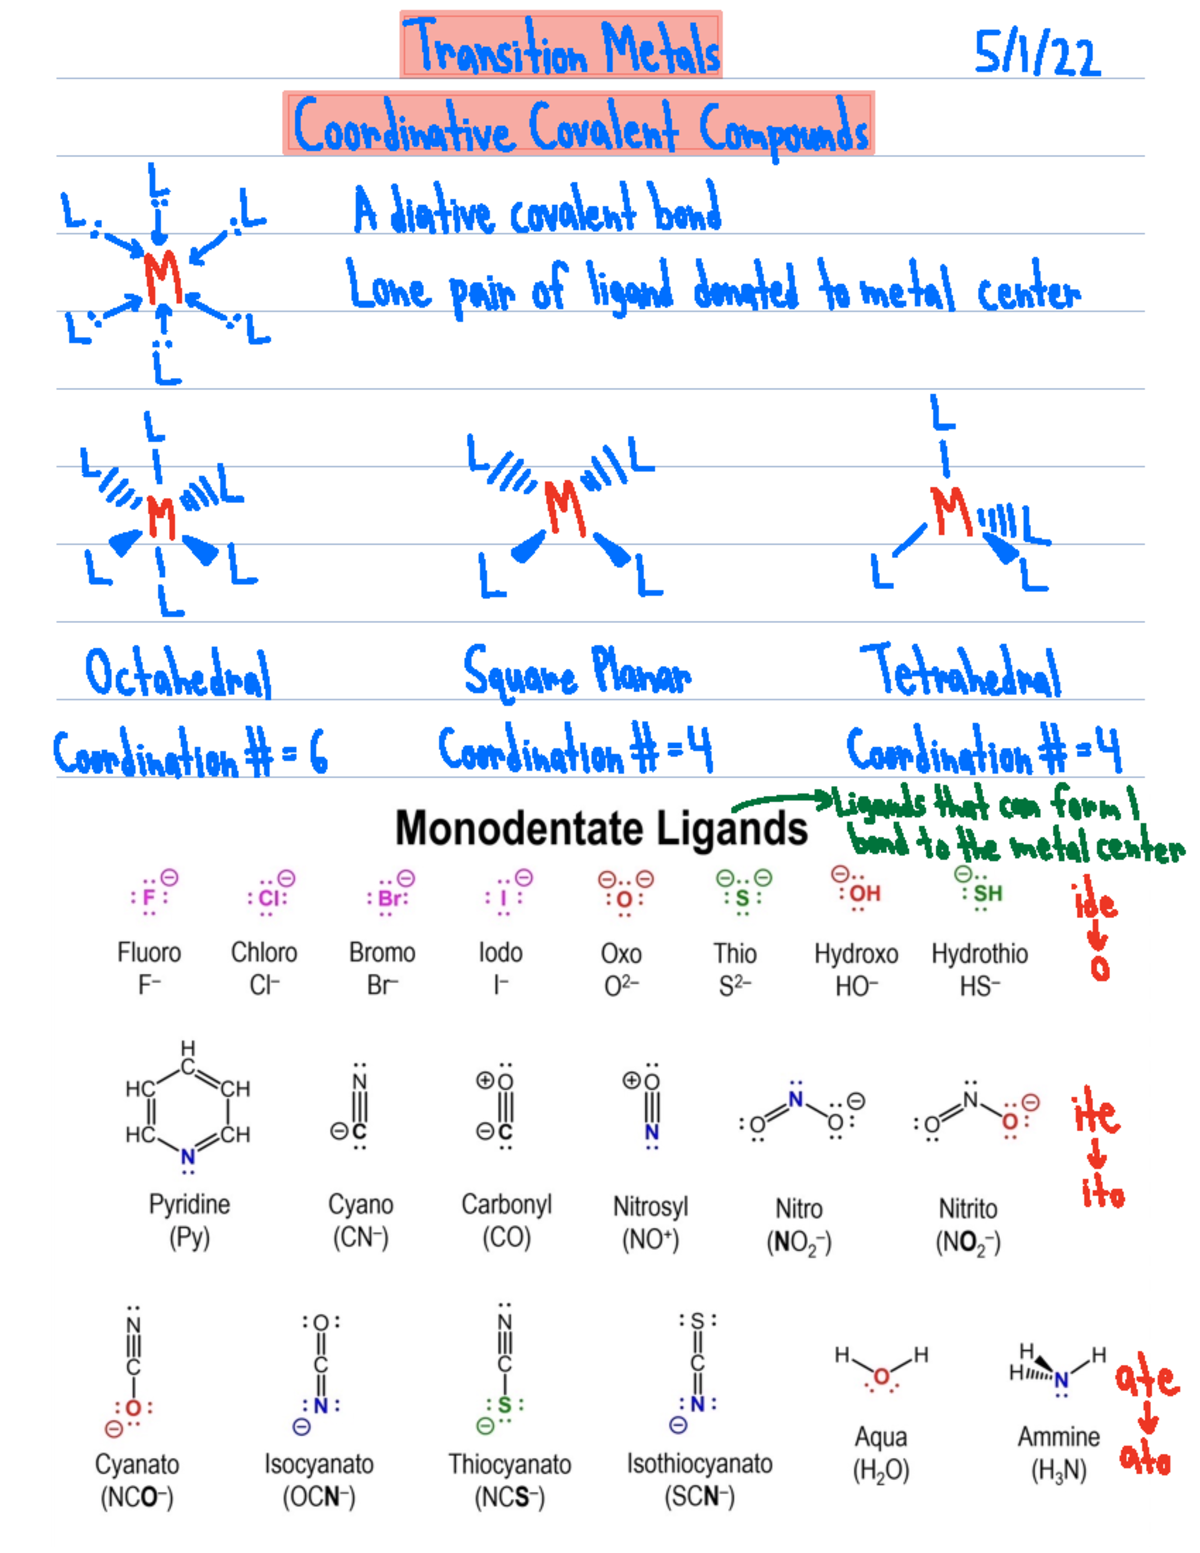 Transition Metals
5/1/22
Coordinative Covalent Compounds
L: L: :L
M
L: L: :L
A diative covalent bond
Lone pair of ligand donated to metal center
L
L L
M
L L
L
L L
M
L L
L
M
L L
L
Octahedral Square Planar Tetrahedral
Coordination # = 6 Coordination # = 4 Coordination # = 4
Monodentate Ligands
Ligands that can form 1
bond to the metal center
F⊖ Cl⊖ Br⊖ I⊖ ⊖O⊖ ⊖S⊖ ⊖OH ⊖SH
Fluoro Chloro Bromo Iodo Oxo Thio Hydroxo Hydrothio
F⁻ Cl⁻ Br⁻ I⁻ O²⁻ S²⁻ HO⁻ HS⁻
ide
↓
o
H
C
HC CH
HC CH
N
N
⊖C
⊕O
⊖C
⊕O
N
N
O O⊖
N
O O⊖
ite
↓
ito
Pyridine Cyano Carbonyl Nitrosyl Nitro Nitrito
(Py) (CN⁻) (CO) (NO⁺) (NO₂⁻) (NO₂⁻)
N
C
O
⊖
O
C
N
⊖
N
C
S
⊖
S
C
N
⊖
H H
O
H H
H N
ate
↓
ato
Cyanato Isocyanato Thiocyanato Isothiocyanato Aqua Ammine
(NCO⁻) (OCN⁻) (NCS⁻) (SCN⁻) (H₂O) (H₃N)